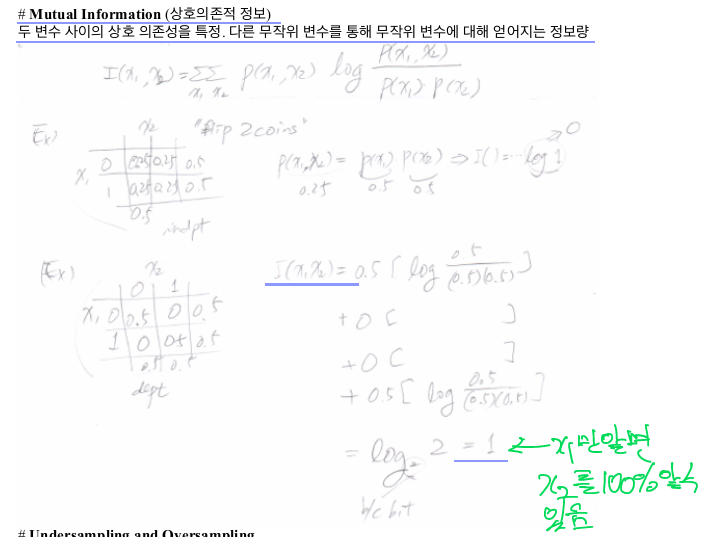 # Mutual Information (상호의존적 정보)
두 변수 사이의 상호 의존성을 특정. 다른 무작위 변수를 통해 무작위 변수에 대해 얻어지는 정보량
I(x₁,x₂)=ΣΣ p(x₁,x₂) log P(x₁,x₂) / P(x₁) P(x₂)
x₁ x₂
Ex) x₂ "flip 2 coins"
x₁ 0 0.25 0.25 0.5
1 0.25 0.25 0.5
0.5
indpt
P(x₁,x₂) = p(x₁) p(x₂) ⇒ I() = ... log 1 → 0
0.25 0.5 0.5
Ex) x₂
0 1
x₁ 0 0.5 0 0.5
1 0 0.5 0.5
0.5 0.5
dept
I(x₁,x₂) = 0.5 [ log 0.5 / (0.5)(0.5) ]
+ 0 [ ]
+ 0 [ ]
+ 0.5 [ log 0.5 / (0.5)(0.5) ]
= log₂ 2 = 1 ← x₁만알면
x₂를 100% 알수
있음
b/c bit
# Undersampling and Oversampling